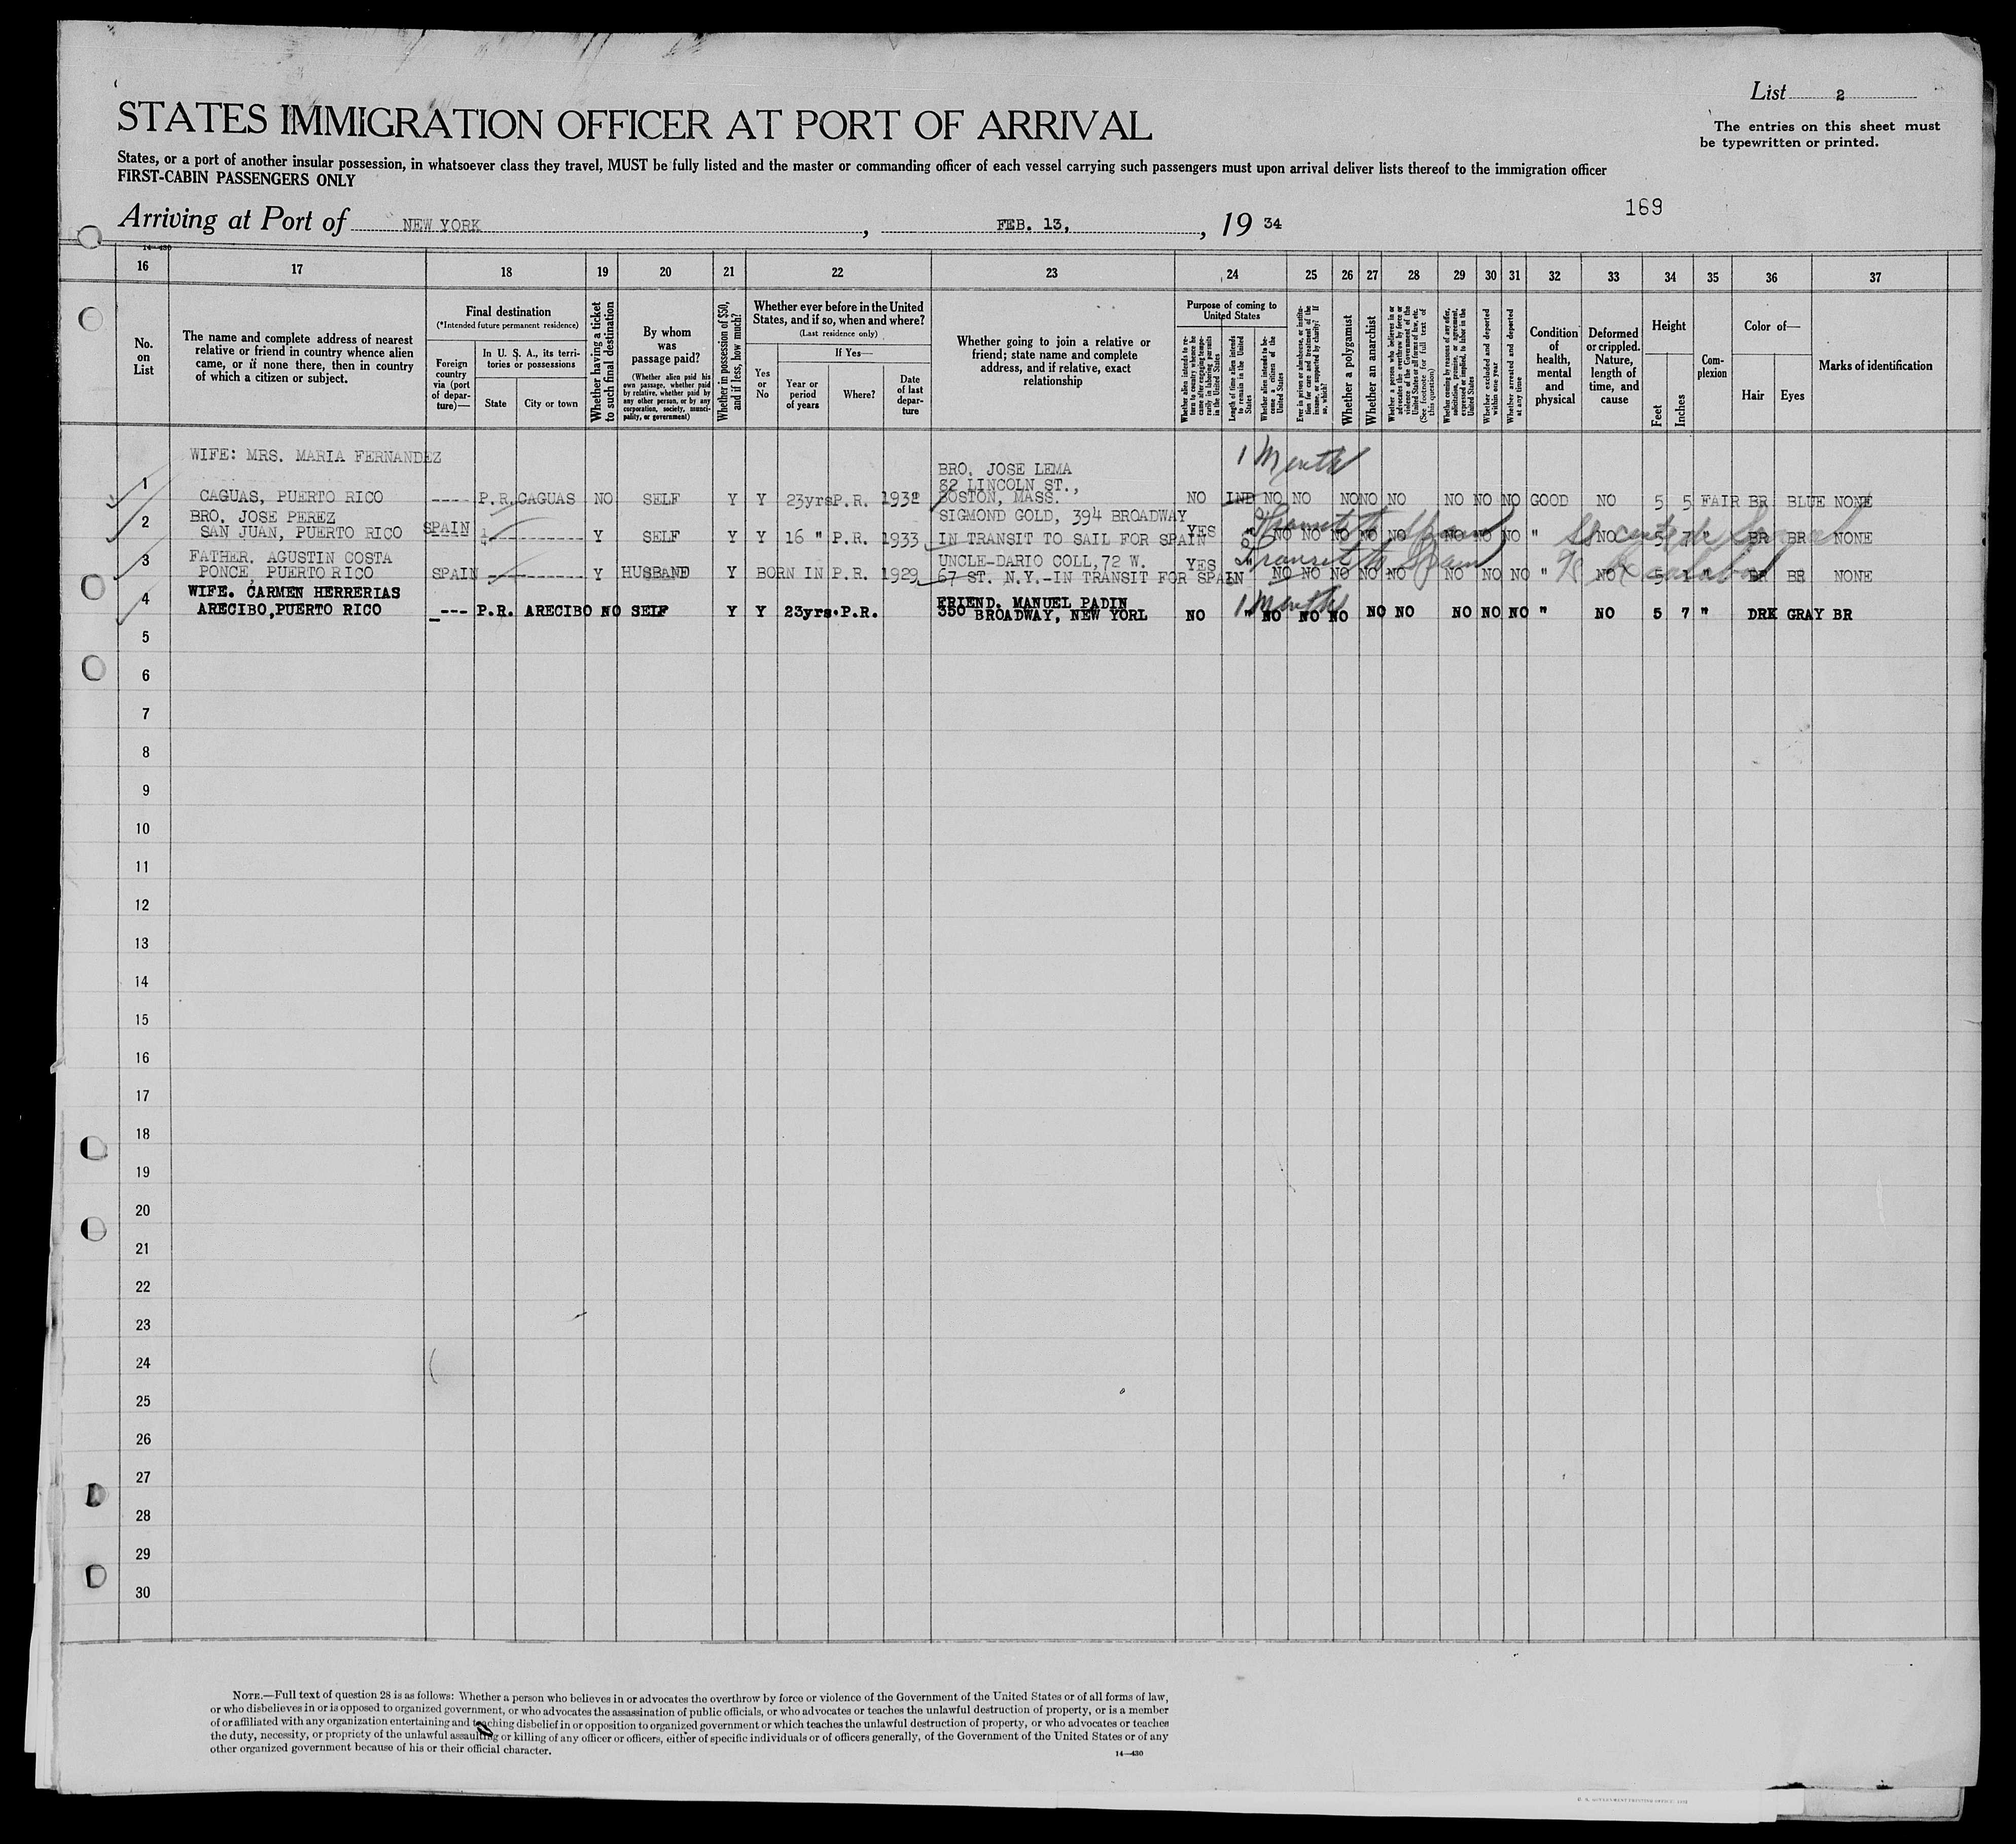 List 2
STATES IMMIGRATION OFFICER AT PORT OF ARRIVAL
The entries on this sheet must
be typewritten or printed.
States, or a port of another insular possession, in whatsoever class they travel, MUST be fully listed and the master or commanding officer of each vessel carrying such passengers must upon arrival deliver lists thereof to the immigration officer
FIRST-CABIN PASSENGERS ONLY
169
Arriving at Port of NEW YORK, FEB. 13, 19 34
14—430
16 17 18 19 20 21 22 23 24 25 26 27 28 29 30 31 32 33 34 35 36 37
No. on List
The name and complete address of nearest relative or friend in country whence alien came, or if none there, then in country of which a citizen or subject.
Final destination
(*Intended future permanent residence)
Foreign country via (port of departure)—
In U. S. A., its territories or possessions
State
City or town
Whether having a ticket to such final destination
By whom was passage paid?
(Whether alien paid his own passage, whether paid by relative, whether paid by any other person, or by any corporation, society, municipality, or government)
Whether in possession of $50, and if less, how much?
Whether ever before in the United States, and if so, when and where?
(Last residence only)
Yes or No
If Yes—
Year or period of years
Where?
Date of last departure
Whether going to join a relative or friend; state name and complete address, and if relative, exact relationship
Purpose of coming to United States
Whether alien intends to return to country whence he came after engaging temporarily in laboring pursuits in the United States
Length of time alien intends to remain in the United States
Whether alien intends to become a citizen of the United States
Ever in prison or almshouse, or institution for care and treatment of the insane, or supported by charity? If so, which?
Whether a polygamist
Whether an anarchist
Whether a person who believes in or advocates the overthrow by force or violence of the Government of the United States or all forms of law, etc. (See footnote for full text of this question)
Whether coming by reasons of any offer, solicitation, promise, or agreement, expressed or implied, to labor in the United States
Whether excluded and deported within one year
Whether arrested and deported at any time
Condition of health, mental and physical
Deformed or crippled. Nature, length of time, and cause
Height
Feet
Inches
Complexion
Color of—
Hair
Eyes
Marks of identification
1 WIFE: MRS. MARIA FERNANDEZ
CAGUAS, PUERTO RICO ---- P.R. CAGUAS NO SELF Y Y 23yrs P.R. 1932 BRO. JOSE LEMA
82 LINCOLN ST.,
BOSTON, MASS. NO IND NO NO NO NO NO NO NO NO GOOD NO 5 5 FAIR BR BLUE NONE
1 Month
2 BRO. JOSE PEREZ
SAN JUAN, PUERTO RICO SPAIN ---------- Y SELF Y Y 16 " P.R. 1933 SIGMOND GOLD, 394 BROADWAY
IN TRANSIT TO SAIL FOR SPAIN YES " NO NO NO NO NO NO NO NO " NO 5 7 " BR BR NONE
Transit to Spain
3 FATHER. AGUSTIN COSTA
PONCE, PUERTO RICO SPAIN ---------- Y HUSBAND Y BORN IN P.R. 1929 UNCLE-DARIO COLL, 72 W.
67 ST. N.Y.-IN TRANSIT FOR SPAIN YES " NO NO NO NO NO NO NO NO " NO 5 " BR BR NONE
Transit to Spain
4 WIFE. CARMEN HERRERIAS
ARECIBO, PUERTO RICO --- P.R. ARECIBO NO SELF Y Y 23yrs. P.R. FRIEND. MANUEL PADIN
350 BROADWAY, NEW YORL NO " NO NO NO NO NO NO NO NO " NO 5 7 " DRK GRAY BR
1 Month
5
6
7
8
9
10
11
12
13
14
15
16
17
18
19
20
21
22
23
24
25
26
27
28
29
30
NOTE.—Full text of question 28 is as follows: Whether a person who believes in or advocates the overthrow by force or violence of the Government of the United States or of all forms of law,
or who disbelieves in or is opposed to organized government, or who advocates the assassination of public officials, or who advocates or teaches the unlawful destruction of property, or is a member
of or affiliated with any organization entertaining and teaching disbelief in or opposition to organized government or which teaches the unlawful destruction of property, or who advocates or teaches
the duty, necessity, or propriety of the unlawful assaulting or killing of any officer or officers, either of specific individuals or of officers generally, of the Government of the United States or of any
other organized government because of his or their official character.
14—430